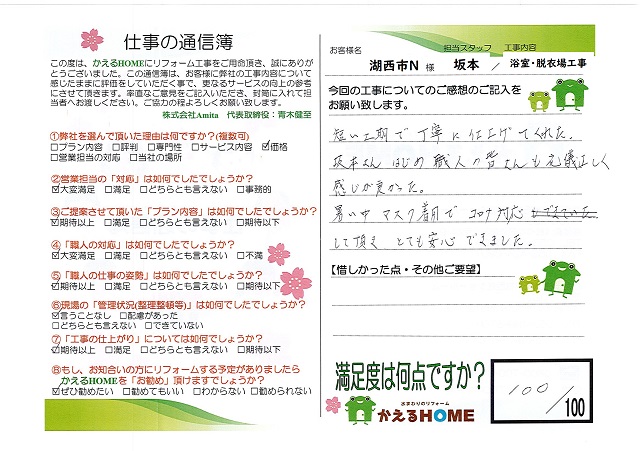 仕事の通信簿
この度は、かえるHOMEにリフォーム工事をご用命頂き、誠にありが
とうございました。この通信簿は、お客様に弊社の工事内容について
感じたままに評価をしていただく事で、更なるサービスの向上の参考
にさせて頂きます。率直なご意見をご記入いただき、封筒に入れて担
当者へお渡しください。ご協力の程よろしくお願い致します。
株式会社Amita 代表取締役:青木健至
①弊社を選んで頂いた理由は何ですか?(複数可)
□プラン内容 □評判 □専門性 □サービス内容 ☑価格
□営業担当の対応 □当社の場所
②営業担当の「対応」は如何でしたでしょうか?
☑大変満足 □満足 □どちらとも言えない □事務的
③ご提案させて頂いた「プラン内容」は如何でしたでしょうか?
☑期待以上 □満足 □どちらとも言えない □期待以下
④「職人の対応」は如何でしたでしょうか?
☑大変満足 □満足 □どちらとも言えない □不満
⑤「職人の仕事の姿勢」は如何でしたでしょうか?
☑期待以上 □満足 □どちらとも言えない □期待以下
⑥現場の「管理状況(整理整頓等)」は如何でしたでしょうか?
☑言うことなし □配慮があった
□どちらとも言えない □できていない
⑦「工事の仕上がり」については如何でしょうか?
☑期待以上 □満足 □どちらとも言えない □期待以下
⑧もし、お知合いの方にリフォームする予定がありましたら
かえるHOMEを「お勧め」頂けますでしょうか?
☑ぜひ勧めたい □勧めてもいい □わからない □勧められない
お客様名 担当スタッフ 工事内容
湖西市N 様 坂本 / 浴室・脱衣場工事
今回の工事についてのご感想のご記入を
お願い致します。
短い工期で丁寧に仕上げてくれた。
坂本さんはじめ職人の皆さんも礼儀正しく
感じが良かった。
暑い中マスク着用でコロナ対応
して頂きとても安心できました。
【惜しかった点・その他ご要望】
満足度は何点ですか?
100/100
水まわりのリフォーム
かえるHOME